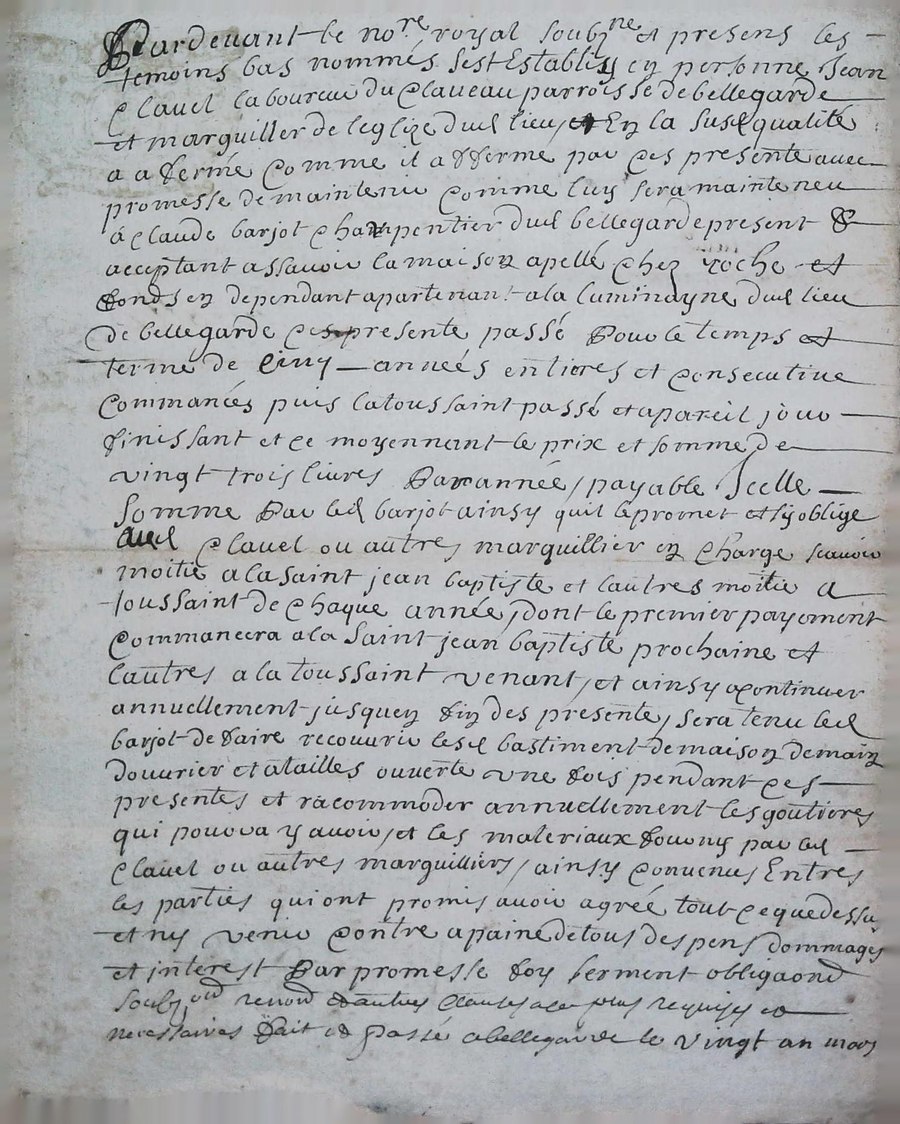 Pardevant le no.re royal soubz.ne et presens les
temoins bas nommés sest Establiy en personne Jean
Clavel laboureur du Claveau parroisse de bellegarde
et marguiller de leglize dud lieu, et En la susd qualité
a afermé comme il afferme par ces presente avec
promesse de maintenir comme luy sera mainteneu
a Claude barjot charpentier dud bellegarde present &
acceptant assavoir la maison apellé chez roche et
fonds en dependant apartenant a la luminayre dud lieu
de bellegarde ces presente passé Pour le temps et
terme de cinq années entieres et consecutive
commancés puis la toussaint passé et a pareil jour
finissant et ce moyennant le prix et somme de
vingt trois livres Par année, payable Icelle
somme Par led barjot ainsy quil le promet et sy oblige
aud Clavel ou autres marguillier en charge scavoir
moitie a la saint jean baptiste et lautres moitie a
toussaint de chaque année, dont le premier payement
commancera a la saint jean baptiste prochaine et
lautres a la toussaint venant, et ainsy a continuer
annuellement jusquen fin des presente, sera tenu led
barjot de faire recouvrir lesd bastiment de maison de main
douvrier et atailles ouverte une fois pendant ces
presentes et racommoder annuellement les goutieres
qui pouora y avoir, et les materiaux fourny par led
Clavel ou autres marguilliers, ainsy convenus Entres
les parties qui ont promis avoir agreé tout ce que dessu
et ny venir contre a paine de tous despens dommages
et interest Par promesse foy serment obligaond
soubz.ond renond dautres clauses a ce plus requises et
necessaires fait et passé a bellegarde le vingt un mars